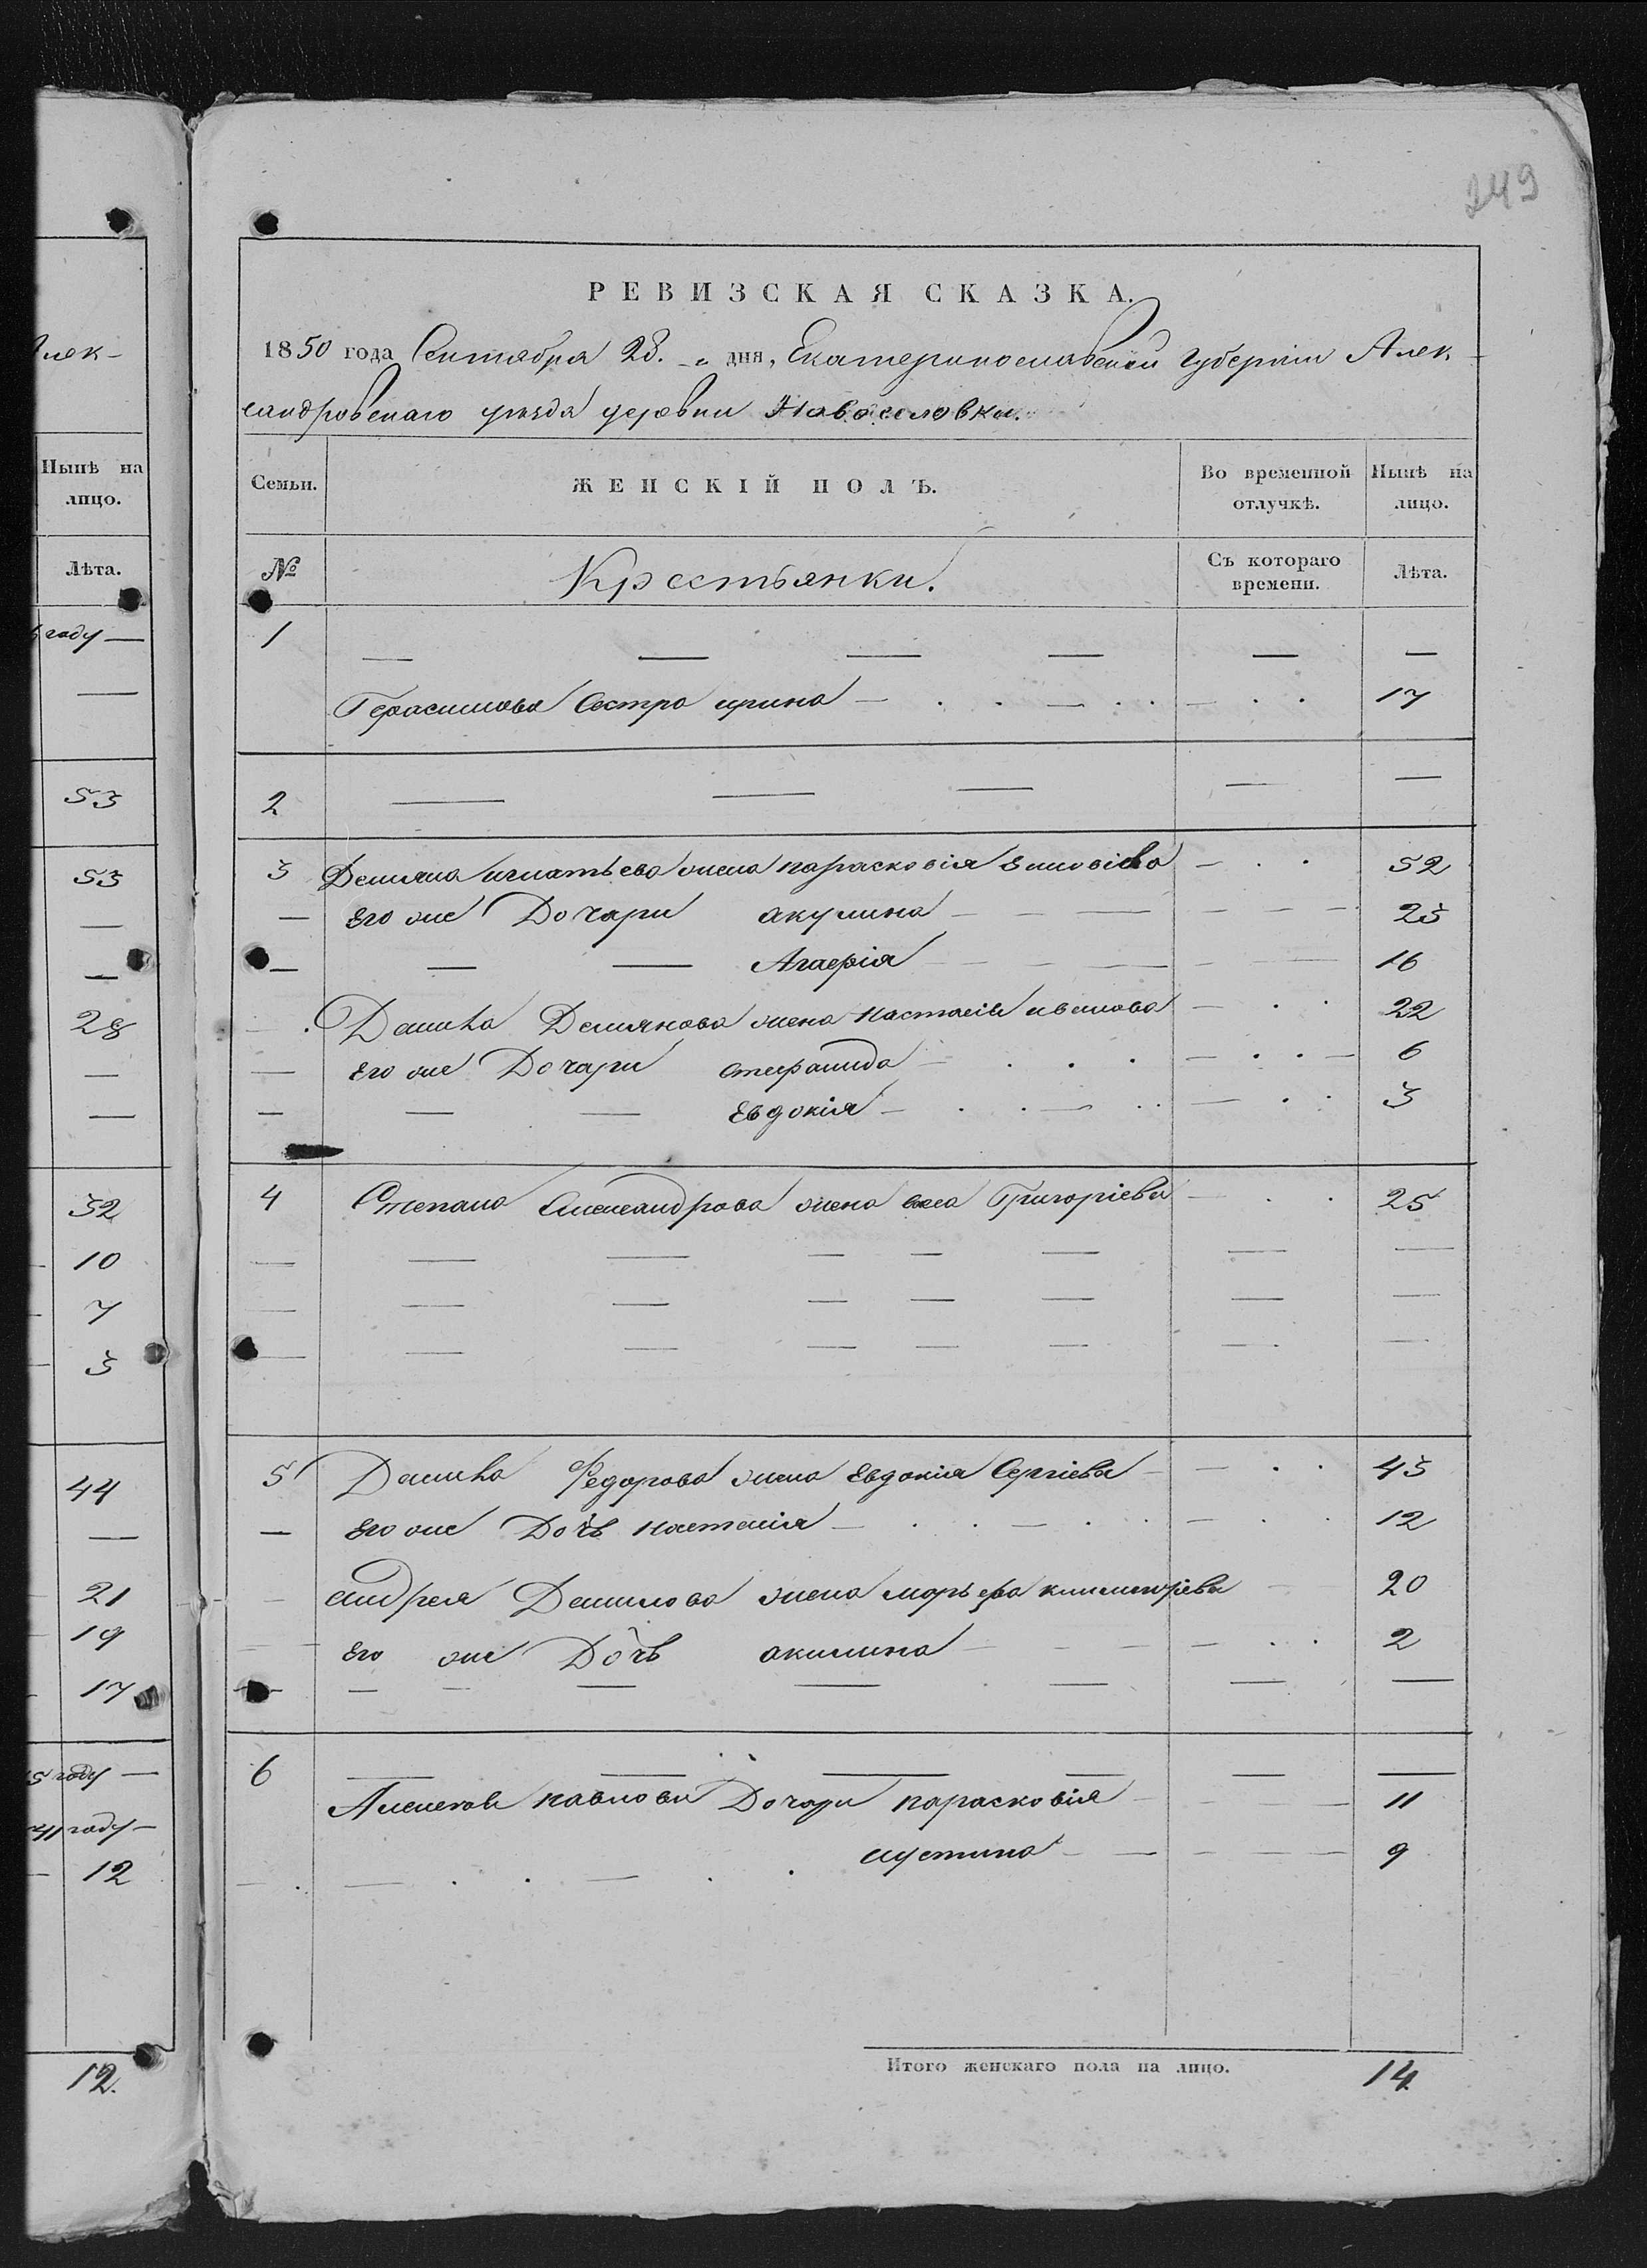 лек-
Нынѣ на
лицо.
Лѣта.
году —
—
53
53
—
—
28
—
—
32
10
7
3
44
—
21
19
17
5 году —
41 году —
12
12.
249
РЕВИЗСКАЯ СКАЗКА.
1850 года Сентября 28. дня, Екатеринославской губерніи Алек-
сандровскаго уѣзда деревни Новоселовки.
Семьи. ЖЕНСКІЙ ПОЛЪ. Во временной отлучкѣ. Нынѣ на лицо.
№ Крестьянки. Съ котораго времени. Лѣта.
1 — — — — — —
Герасимова Сестра ирина — 17
2 — — — — —
3 Демяна игнатьева жена парасковія — 52
— Его же Дочари акулина — 23
— — — Агафія — 16
Данила Демянова жена настасія иванова — 22
— Его же Дочари стефанида — 6
— — — Евдокія — 3
4 Степана Александрова жена васа Григоріева — 25
— — — — — — — —
— — — — — — — —
— — — — — — — —
5 Данила Федорова жена Евдокія Сергіева — 43
— Его же Дочь настасія — 12
андрея Данилова жена марьефа — 20
Его же Дочь акилина — 2
— — — — — — — —
6 — — — — — —
Алексея павлова Дочари парасковія — 11
иустина — 9
Итого женскаго пола на лицо. 14